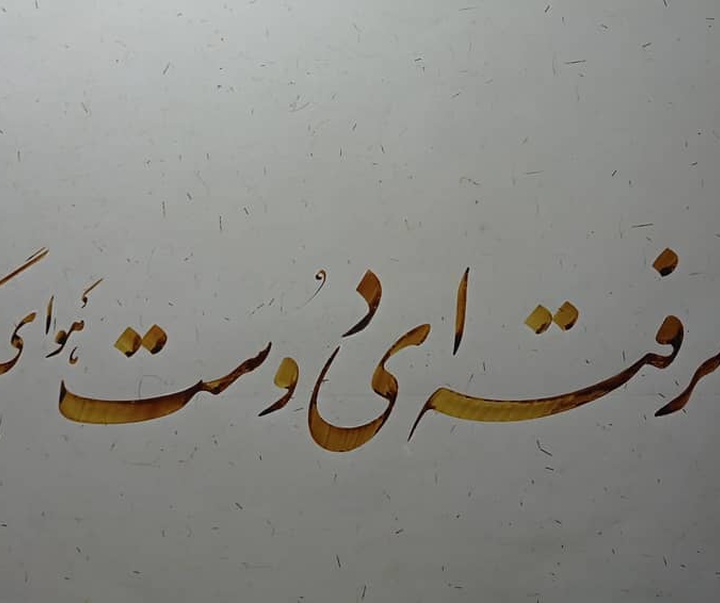 رفته ای دوست هوای